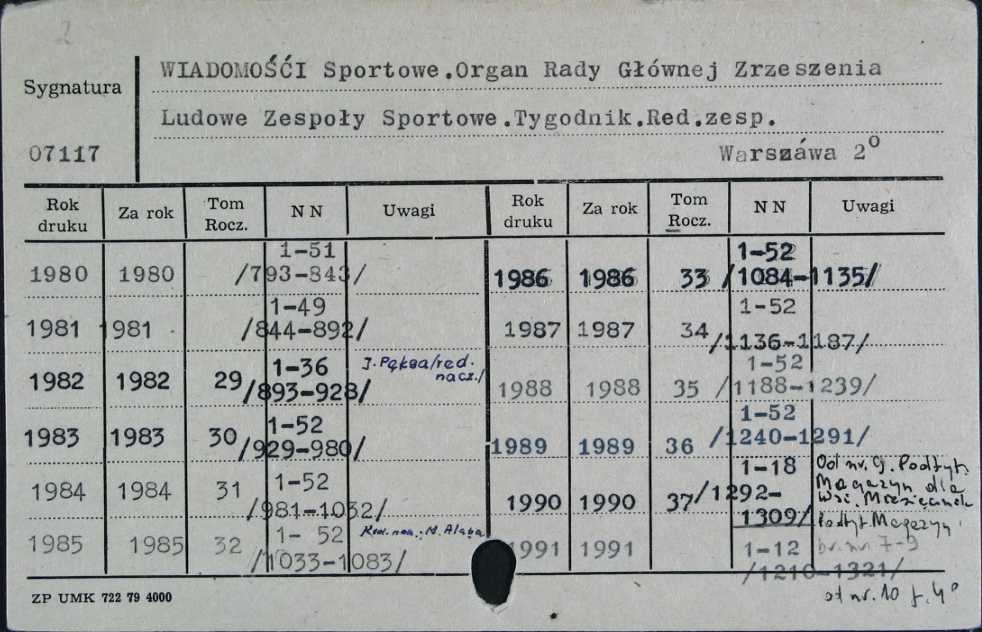 2
WIADOMOŚĆI Sportowe.Organ Rady Głównej Zrzeszenia
Sygnatura
Ludowe Zespoły Sportowe.Tygodnik.Red.zesp.
07117
Warszáwa 2º
Rok druku Za rok Tom Rocz. NN Uwagi Rok druku Za rok Tom Rocz. NN Uwagi
1980 1980 1-51 /793-843/
1981 1981 1-49 /844-892/
1982 1982 29 1-36 /893-928/ J. Pęksa/red. nacz./
1983 1983 30 1-52 /929-980/
1984 1984 31 1-52 /981-1032/
1985 1985 32 1- 52 /1033-1083/
1986 1986 33 1-52 /1084-1135/
1987 1987 34 1-52 /1136-1187/
1988 1988 35 1-52 /1188-1239/
1989 1989 36 1-52 /1240-1291/
1990 1990 37 1-18 /1292-1309/ Od nr. 9. Podtyt. Magazyn dla Wsi. Podtyt Magazyn
1991 1991 1-12 /1210-1321/ br. nr 7-9
od nr. 10 f. 4º
ZP UMK 722 79 4000